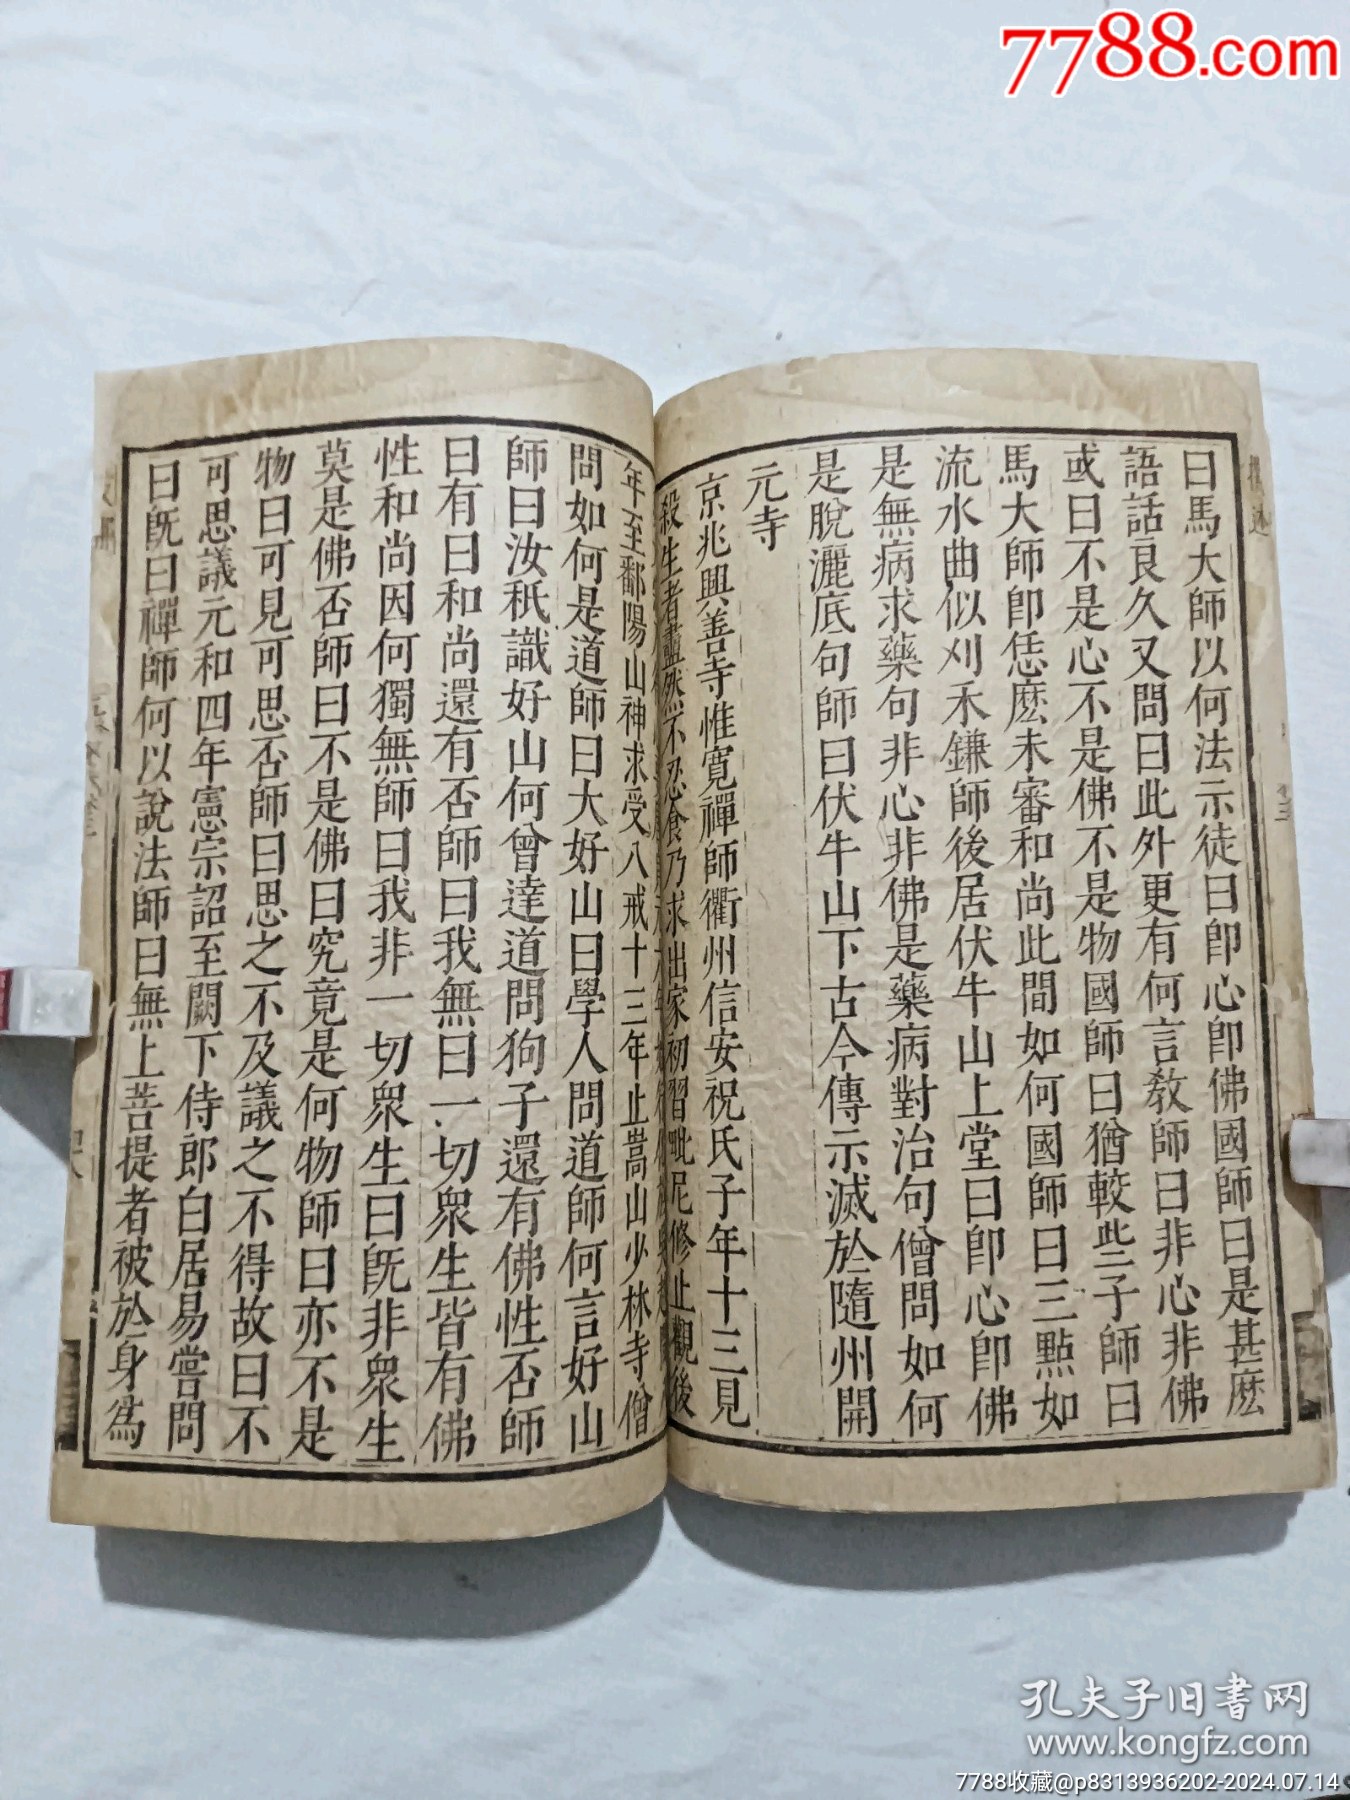 7788.com
曰馬大師以何法示徒曰卽心卽佛國師曰是甚麽
語話良久又問曰此外更有何言敎師曰非心非佛
或曰不是心不是佛不是物國師曰猶較些子師曰
馬大師卽恁麽未審和尚此間如何國師曰三點如
流水曲似刈禾鎌師後居伏牛山上堂曰卽心卽佛
是無病求藥句非心非佛是藥病對治句僧問如何
是脫灑底句師曰伏牛山下古今傳示滅於隨州開
元寺
京兆興善寺惟寬禪師衢州信安祝氏子年十三見
殺生者衋然不忍食乃求出家初習毗尼修止觀後
年至鄱陽山神求受八戒十三年止嵩山少林寺僧
問如何是道師曰大好山曰學人問道師何言好山
師曰汝祇識好山何曾達道問狗子還有佛性否師
曰有曰和尚還有否師曰我無曰一切眾生皆有佛
性和尚因何獨無師曰我非一切眾生曰旣非眾生
莫是佛否師曰不是佛曰究竟是何物師曰亦不是
物曰可見可思否師曰思之不及議之不得故曰不
可思議元和四年憲宗詔至闕下侍郎白居易嘗問
曰旣曰禪師何以說法師曰無上菩提者被於身為
孔夫子旧書网
www.kongfz.com
7788收藏@p8313936202-2024.07.14